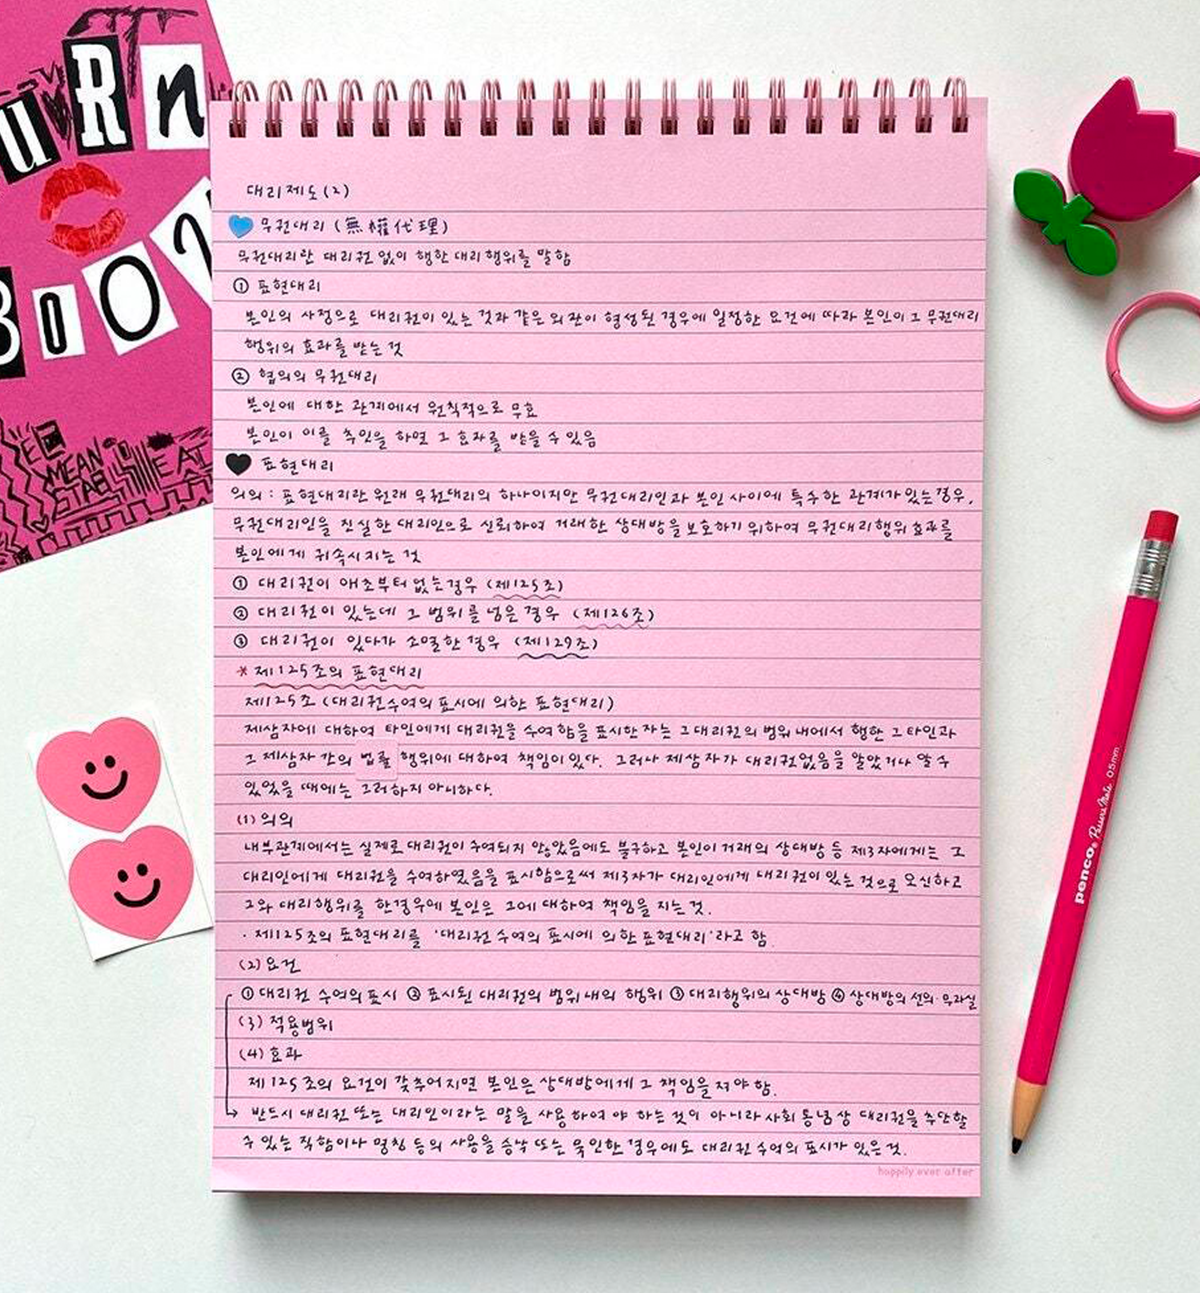 uRn
BOO
MEAN
STAB
EAT
대리제도(2)
무권대리 (無權代理)
무권대리란 대리권 없이 행한 대리행위를 말함
① 표현대리
본인의 사정으로 대리권이 있는 것과 같은 외관이 형성된 경우에 일정한 요건에 따라 본인이 그 무권대리
행위의 효과를 받는 것
② 협의의 무권대리
본인에 대한 관계에서 원칙적으로 무효
본인이 이를 추인을 하면 그 효과를 받을 수 있음
표현대리
의의 : 표현대리란 원래 무권대리의 하나이지만 무권대리인과 본인 사이에 특수한 관계가 있는 경우,
무권대리인을 진실한 대리인으로 신뢰하여 거래한 상대방을 보호하기 위하여 무권대리행위 효과를
본인에게 귀속시키는 것
① 대리권이 애초부터 없는 경우 (제125조)
② 대리권이 있는데 그 범위를 넘은 경우 (제126조)
③ 대리권이 있다가 소멸한 경우 (제129조)
* 제125조의 표현대리
제125조 (대리권수여의 표시에 의한 표현대리)
제삼자에 대하여 타인에게 대리권을 수여함을 표시한 자는 그 대리권의 범위 내에서 행한 그 타인과
그 제삼자 간의 법률행위에 대하여 책임이 있다. 그러나 제삼자가 대리권없음을 알았거나 알 수
있었을 때에는 그러하지 아니하다.
(1) 의의
내부관계에서는 실제로 대리권이 수여되지 않았음에도 불구하고 본인이 거래의 상대방 등 제3자에게는 그
대리인에게 대리권을 수여하였음을 표시함으로써 제3자가 대리인에게 대리권이 있는 것으로 오신하고
그와 대리행위를 한경우에 본인은 그에 대하여 책임을 지는 것.
· 제125조의 표현대리를 '대리권 수여의 표시에 의한 표현대리'라고 함.
(2) 요건
① 대리권 수여의 표시 ② 표시된 대리권의 범위 내의 행위 ③ 대리행위의 상대방 ④ 상대방의 선의·무과실
(3) 적용범위
(4) 효과
제125조의 요건이 갖추어지면 본인은 상대방에게 그 책임을 져야 함.
반드시 대리권 또는 대리인이라는 말을 사용하여야 하는 것이 아니라 사회 통념상 대리권을 추단할
수 있는 직함이나 명칭 등의 사용을 승낙 또는 묵인한 경우에도 대리권 수여의 표시가 있은 것.
happily ever after
penco® Passers Mate 0.5mm